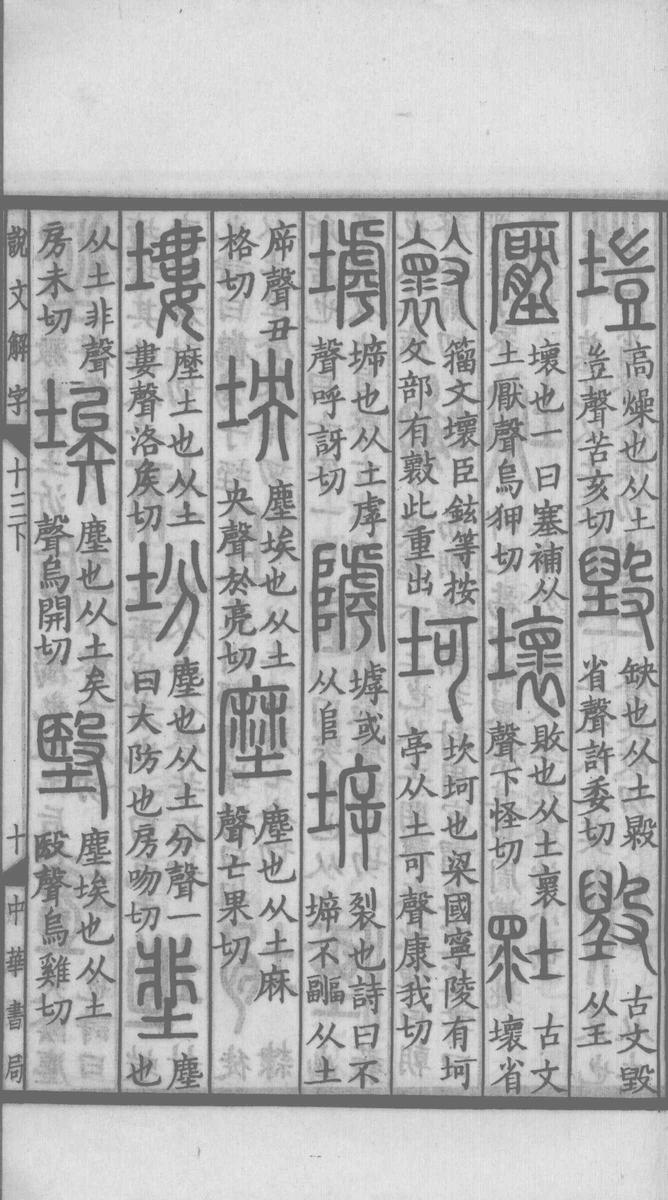 塏高燥也从土豈聲苦亥切毀缺也从土毇省聲許委切𡐦古文毀从王
壓壞也一曰塞補从土厭聲烏狎切壞敗也从土褱聲下怪切𡊭古文壞省
𣀩籒文壞臣鉉等按攵部有𣀩此重出坷坎坷也梁國寧陵有坷亭从土可聲康我切
㙤㙸也从土虖聲呼訝切㙤或从𨸏㙸裂也詩曰不㙸不疈从土
㡿聲丑格切坱塵埃也从土央聲於亮切塺塵也从土麻聲亡果切
塿塺土也从土婁聲洛矦切坋塵也从土分聲一曰大防也房吻切𡋙塵也
从土非聲房未切埃塵也从土矣聲烏開切塵埃也从土殹聲烏雞切
說文解字 十三下 十 中華書局